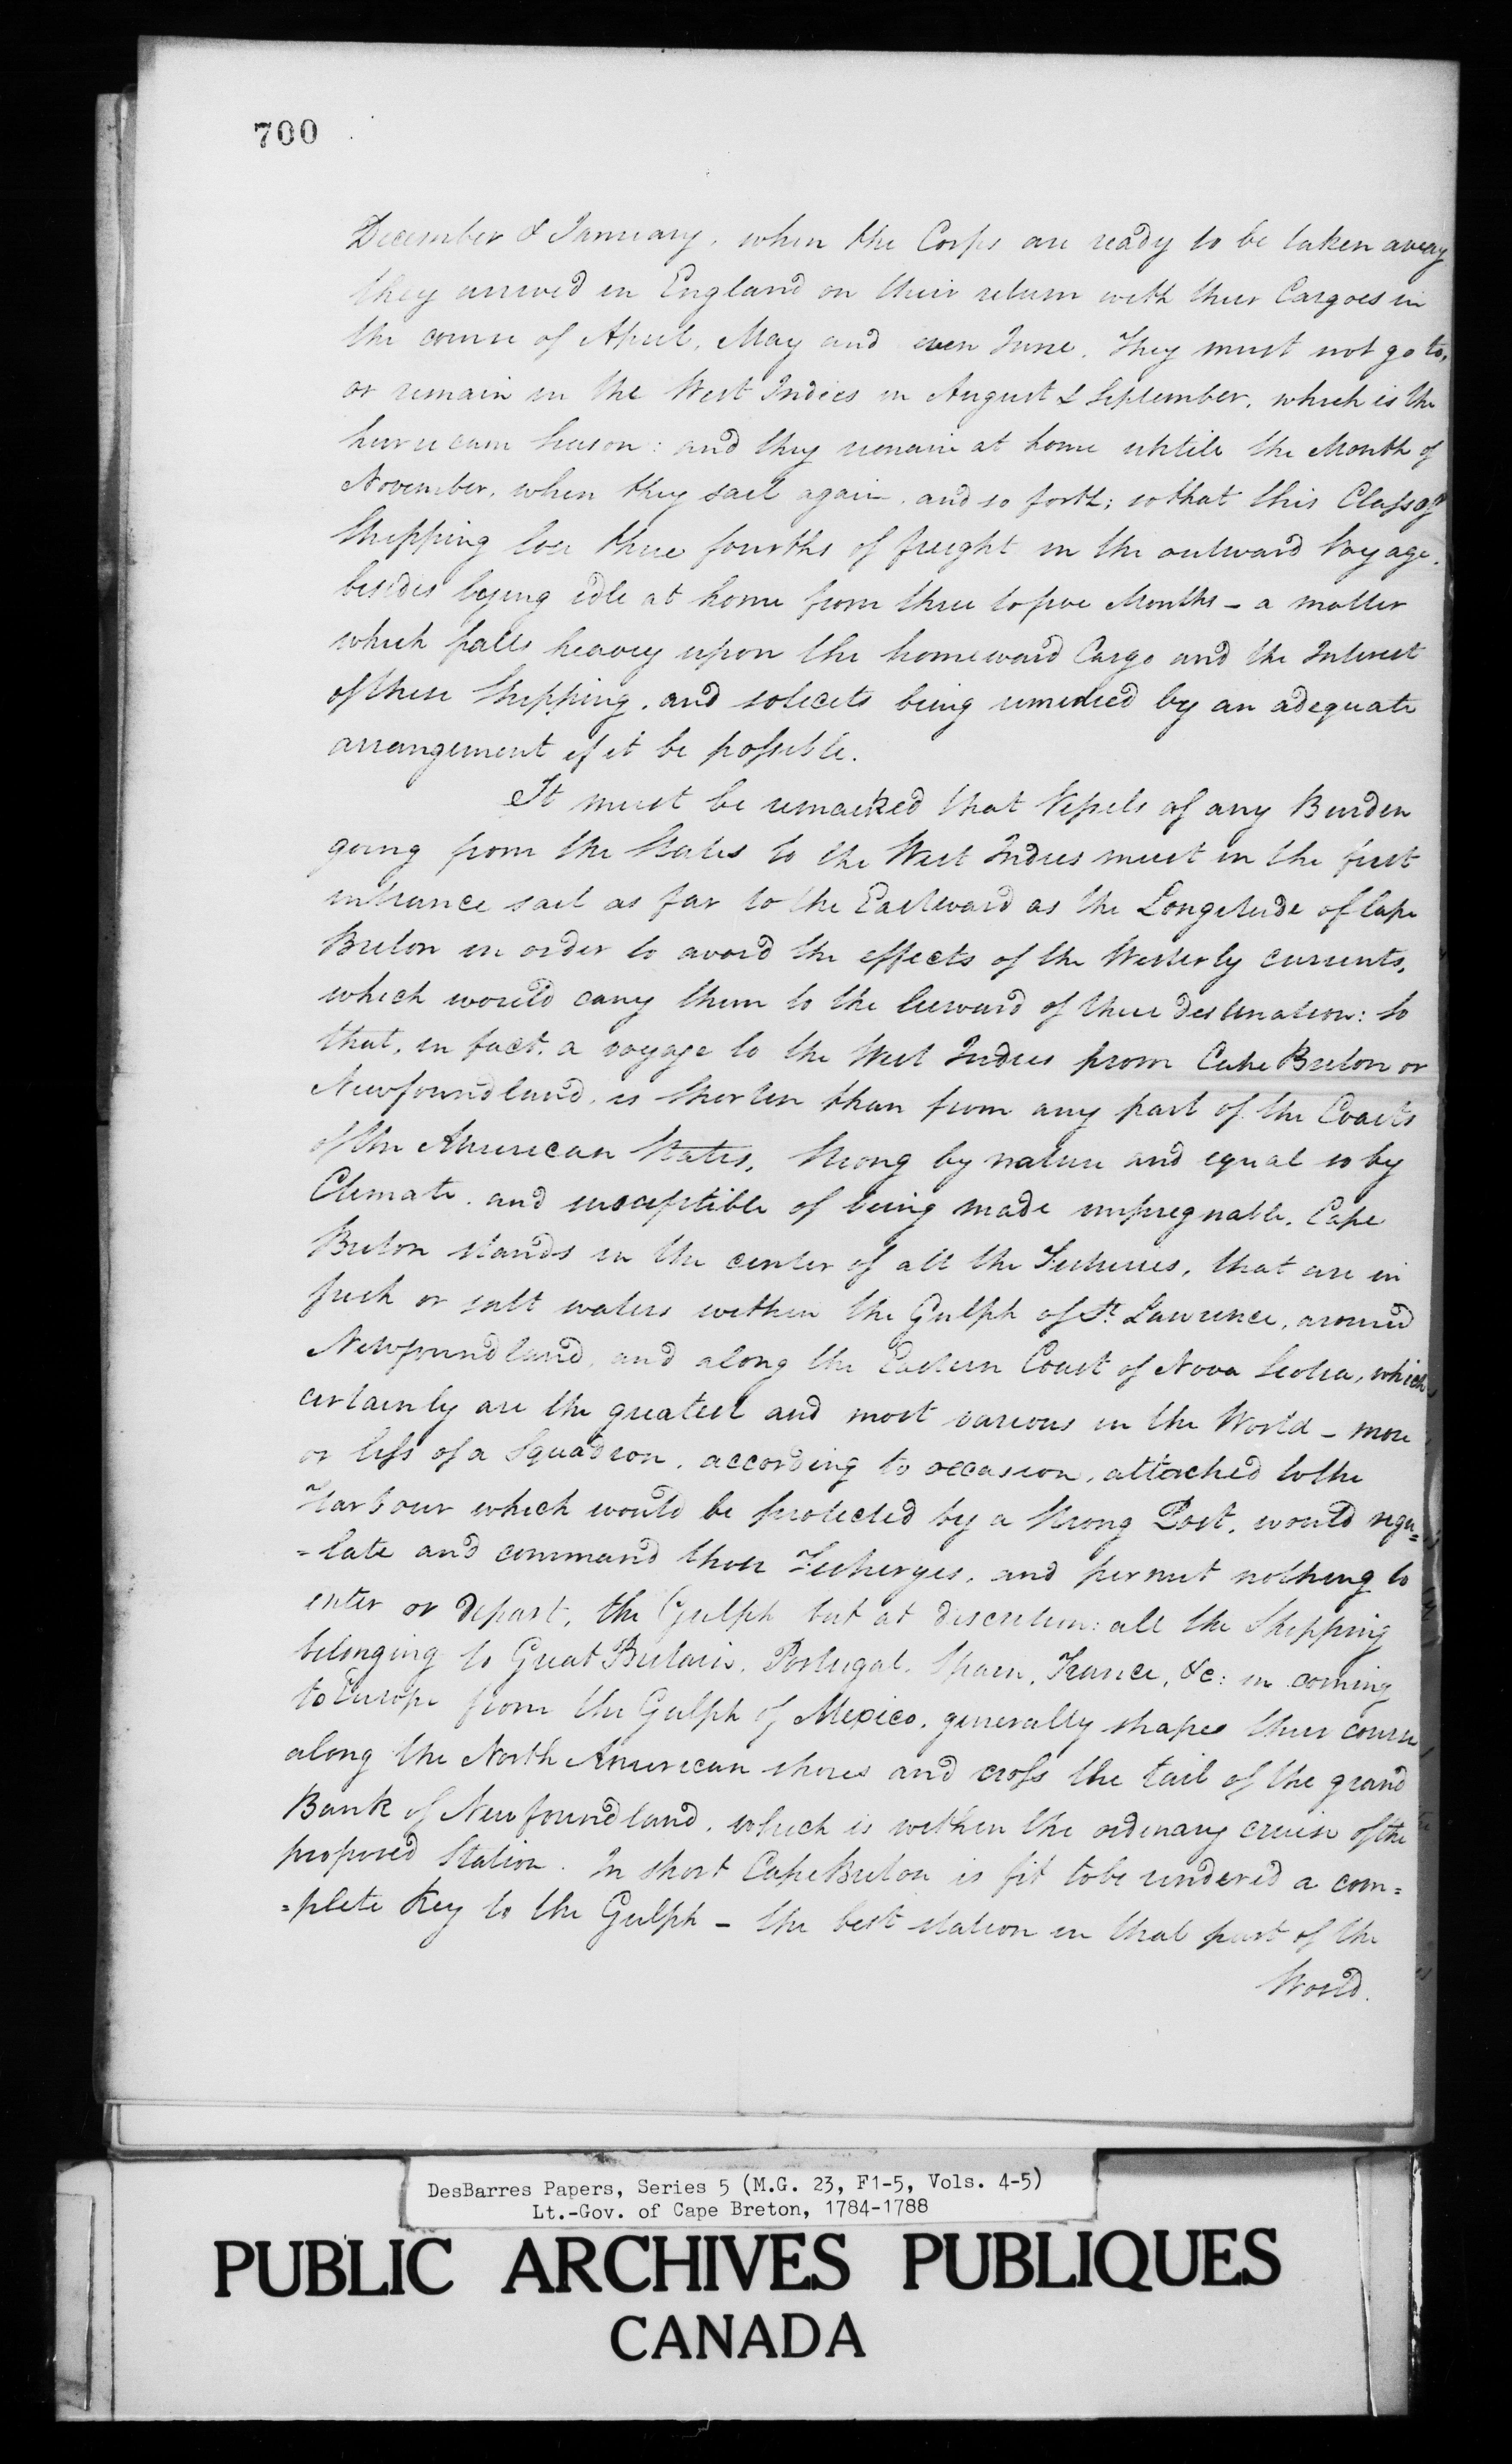 700
December & January, when the Corps are ready to be taken away
they arrived in England on their return with their Cargoes in
the course of April, May and even June. They must not go to,
or remain in the West Indies in August & September, which is the
hurricane Season: and they remain at home untile the Month of
November, when they sail again, and so forth; so that this Class of
Shipping lose three fourths of freight in the outward Voyage,
besides lying idle at home from three to five Months - a matter
which falls heavy upon the homeward Cargo and the Interest
of these Shipping, and solicits being remedied by an adequate
arrangement if it be possible.
It must be remarked that Vessels of any Burden
going from the States to the West Indies must in the first
entrance sail as far to the Eastward as the Longitude of Cape
Breton in order to avoid the effects of the Westerly currents,
which would cany them to the leeward of their destination: so
that, in fact, a voyage to the West Indies from Cape Breton or
Newfoundland, is shorter than from any part of the Coasts
of the American States. Strong by nature and equal so by
Climate, and susceptible of being made impregnable, Cape
Breton stands in the center of all the Fisheries, that are in
fresh or salt waters within the Gulph of St. Lawrence, around
Newfoundland, and along the Eastern Coast of Nova Scotia, which
certainly are the greatest and most various in the World - more
or less of a Squadron, according to occasion, attached to the
Harbour which would be protected by a Strong Post, would regu=
=late and command those Fisherys, and permit nothing to
enter or depart, the Gulph but at discretion: all the Shipping
belonging to Great Britain, Portugal, Spain, France, &c: in coming
to Europe from the Gulph of Mexico, generally shapes their course
along the North American shores and cross the tail of the grand
Bank of Newfoundland, which is within the ordinary cruise of the
proposed Station. In short Cape Breton is fit to be rendered a com=
=plete Key to the Gulph - the best station in that part of the
World.
DesBarres Papers, Series 5 (M.G. 23, F1-5, Vols. 4-5)
Lt.-Gov. of Cape Breton, 1784-1788
PUBLIC ARCHIVES PUBLIQUES
CANADA